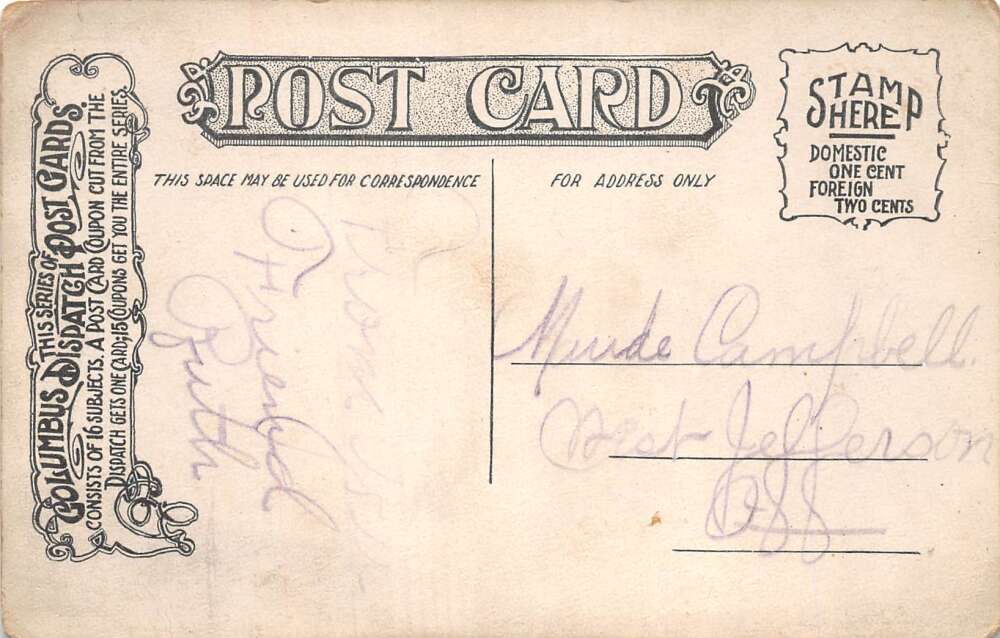 POST CARD
STAMP
HERE
DOMESTIC
ONE CENT
FOREIGN
TWO CENTS
THIS SPACE MAY BE USED FOR CORRESPONDENCE
FOR ADDRESS ONLY
THIS SERIES OF
COLUMBUS DISPATCH POST CARDS
CONSISTS OF 16 SUBJECTS. A POST CARD COUPON CUT FROM THE
DISPATCH GETS ONE CARD; 15 COUPONS GET YOU THE ENTIRE SERIES.
From
Friend
Ruth
Campbell
West Jefferson